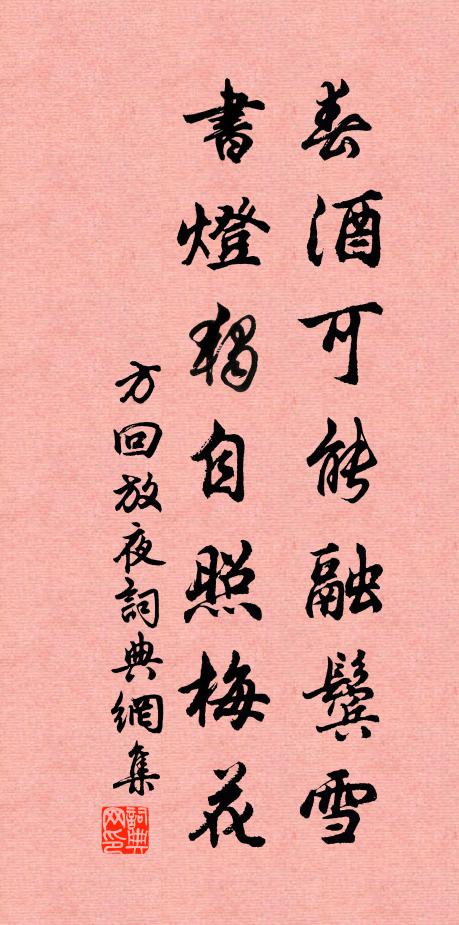 春酒可能融鬓雪
書燈獨自照梅花
方回放夜詞典網集
詞典网印